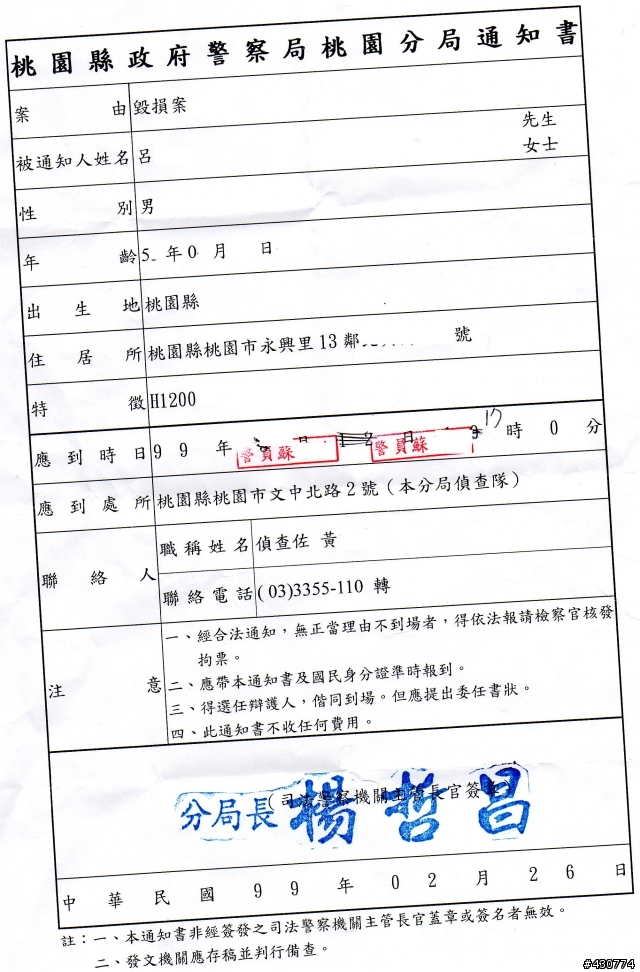 桃園縣政府警察局桃園分局通知書
案由 毀損案
被通知人姓名 呂 先生
女士
性別 男
年齡 5 年0 月 日
出生地 桃園縣
住居所 桃園縣桃園市永興里13鄰 號
特徵 H1200
應到時日 99年 日 17時0分
警員蘇 警員蘇
應到處所 桃園縣桃園市文中北路2號(本分局偵查隊)
聯絡人 職稱姓名 偵查佐 黃
聯絡電話 (03)3355-110 轉
注意 一、經合法通知,無正當理由不到場者,得依法報請檢察官核發
拘票。
二、應帶本通知書及國民身分證準時報到。
三、得選任辯護人,偕同到場。但應提出委任書狀。
四、此通知書不收任何費用。
(司法警察機關主管長官簽章
分局長 楊哲昌
中華民國99年02月26日
註:一、本通知書非經簽發之司法警察機關主管長官蓋章或簽名者無效。
二、發文機關應存稿並判行備查。
#430774